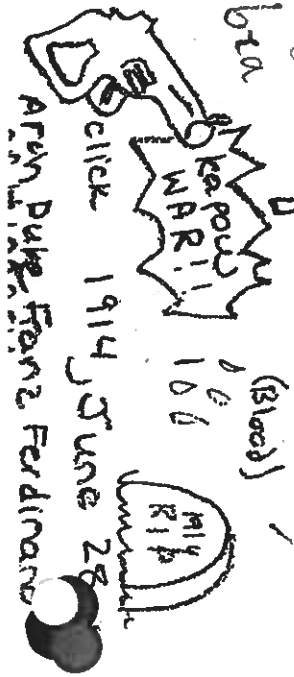 bra
Kapow
WAR!!
(Blood)
click
1914, June 28
RIP
Arch Duke Franz Ferdinand